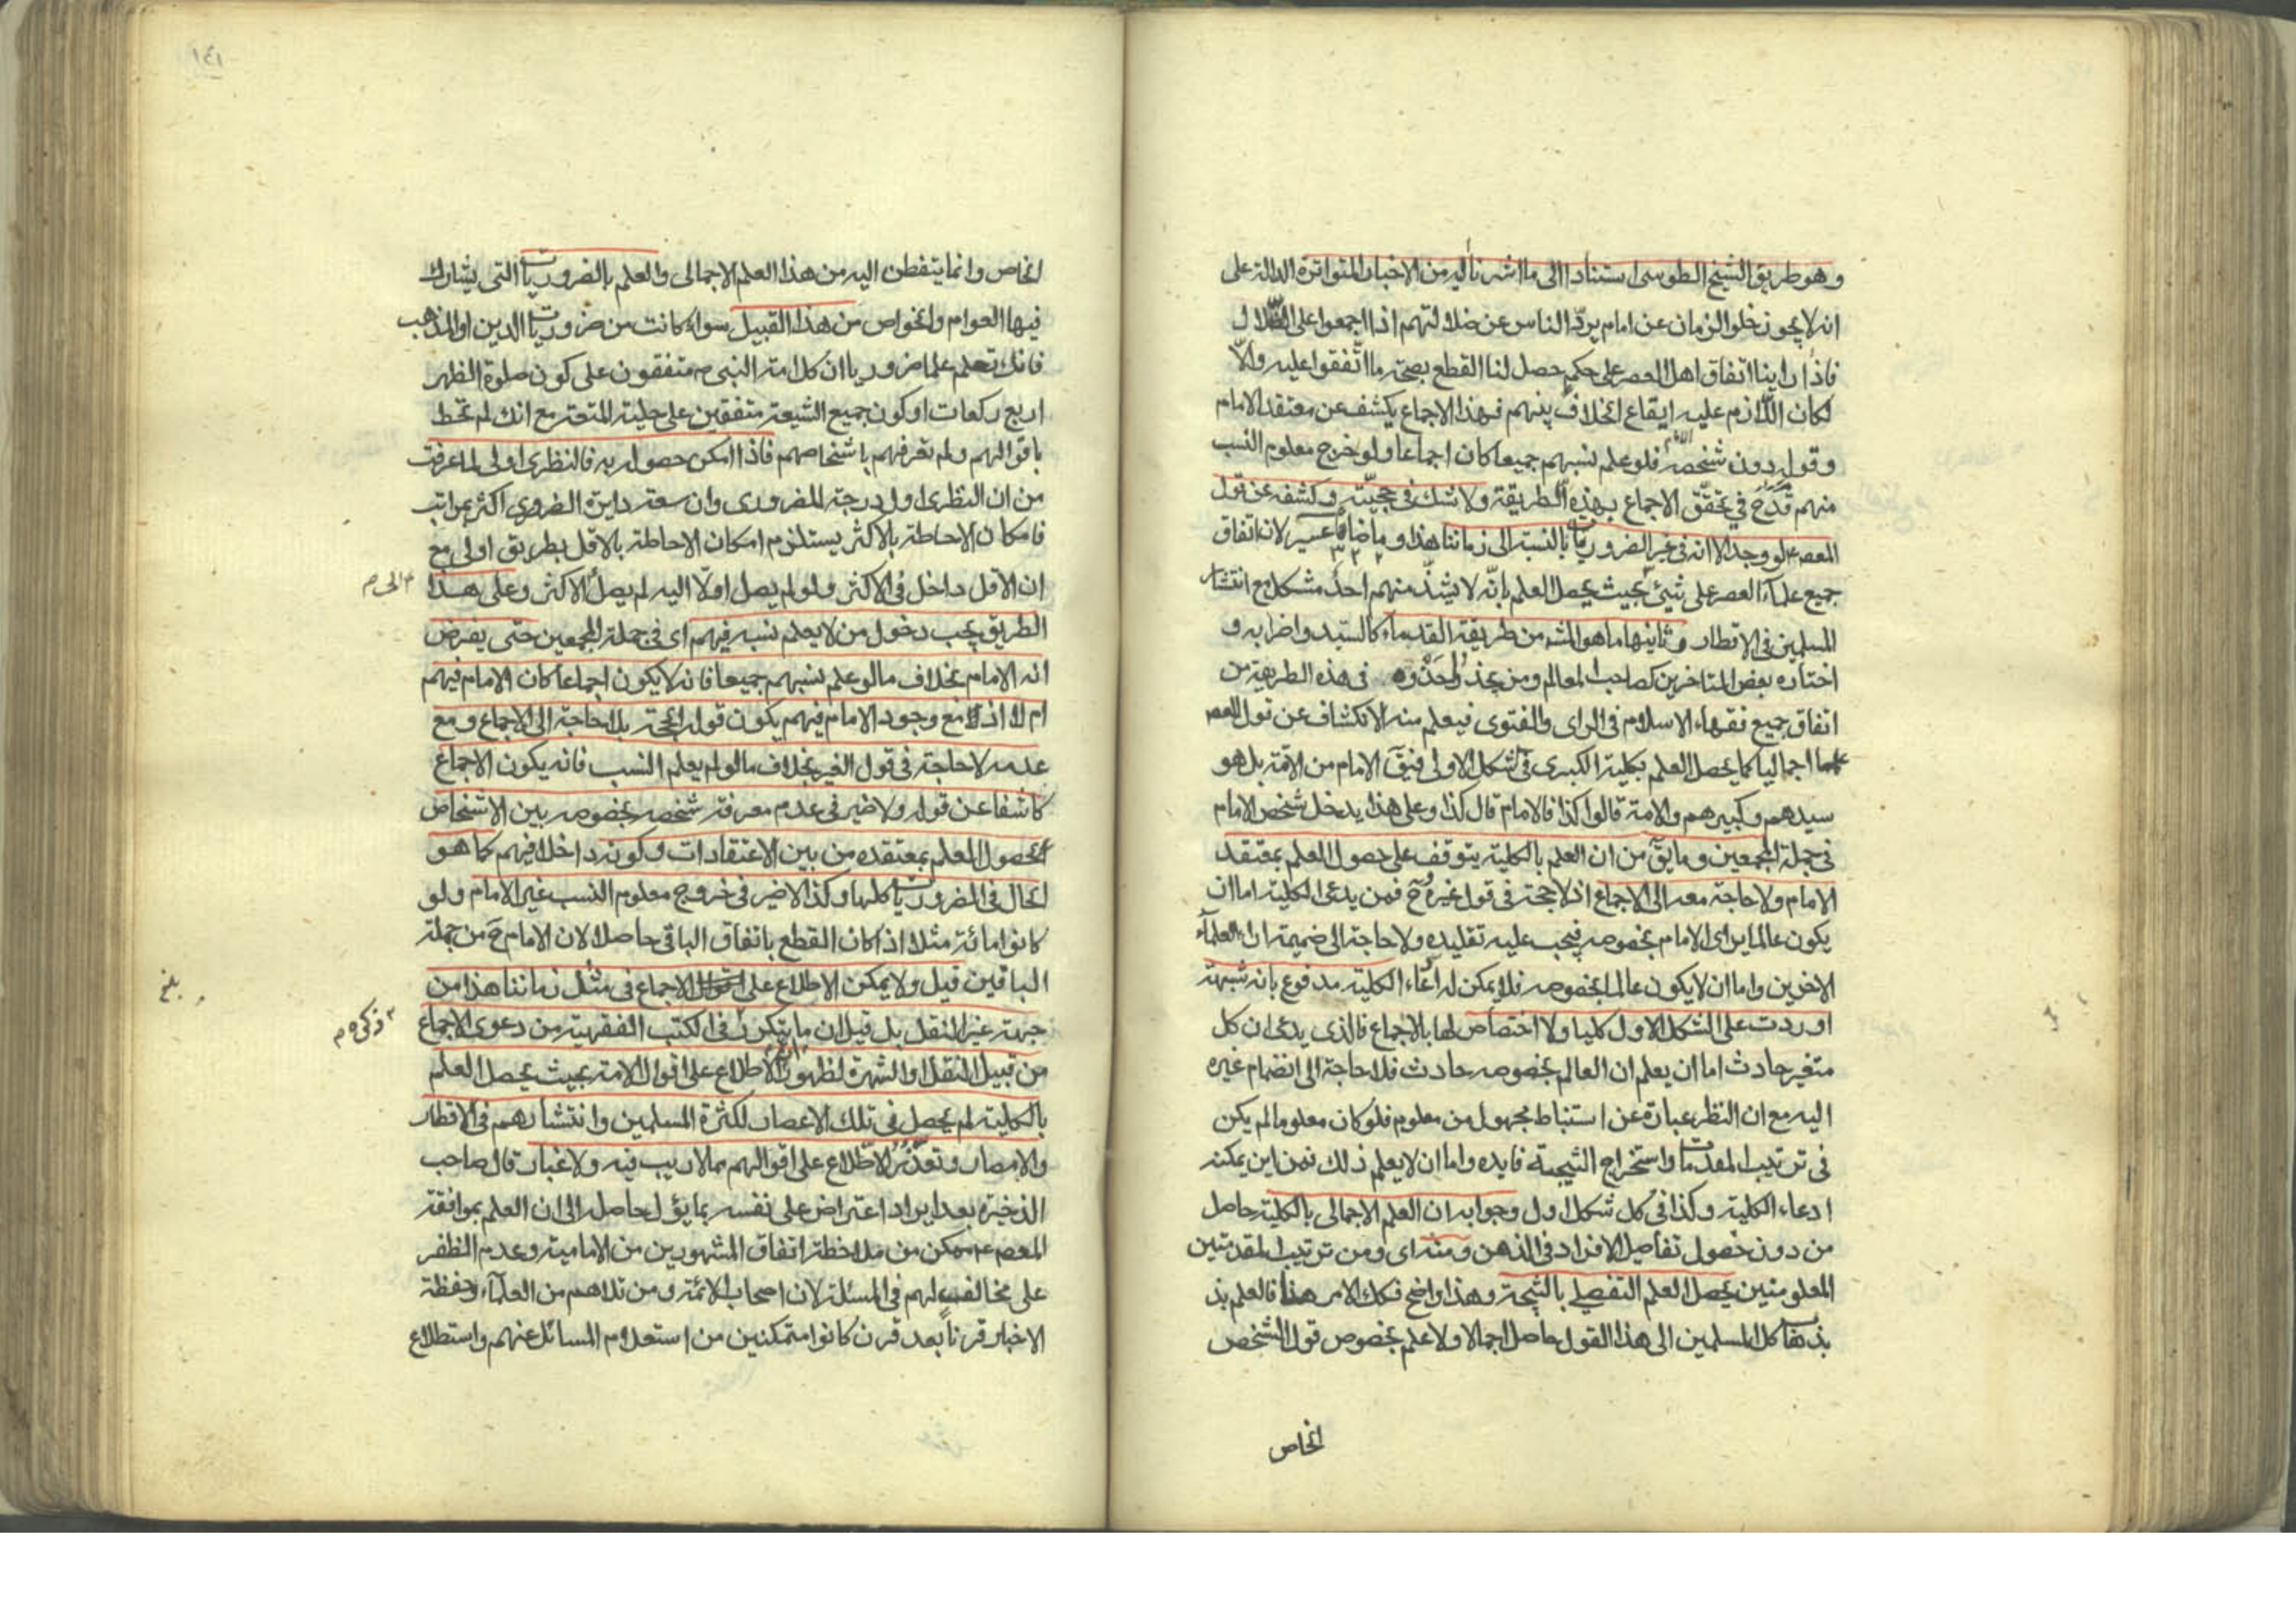 وهو طريق الشيخ الطوسى استنادا الى ما اشرنا اليه من الاخبار المتواترة الدالة على
انه لا يجوز خلو الزمان عن امام يردّ الناس عن ضلالتهم اذا اجمعوا على الضّلال
فاذا راينا اتفاق اهل العصر على حكم حصل لنا القطع بصحّة ما اتّفقوا عليه والّا
لكان اللّازم عليه ايقاع الخلاف بينهم فهذا الاجماع يكشف عن معتقد الامام
وقوله دون شخصه فلو علم نسبهم جميعا كان اجماعا ولو خرج معلوم النسب
منهم قدح في تحقّق الاجماع بهذه الطريقة ولا شك في حجيّته وكشفه عن قول
المعصوم لو وجد الا انه في غير الضروريات بالنسبة الى زماننا هذا وما ضاهاه عسير لان اتفاق
جميع علماء العصر على شيئ بحيث يحصل العلم بانّه لا يشذّ منهم احد مشكل مع انتشار
المسلمين فى الاقطار وثانيها ما هو المشهـ من طريقة القدماء كالسيّد واضرابه و
اختاره بعض المتاخرين كصاحب المعالم ومن يحذو حذوه فى هذه الطريقة من
اتفاق جميع فقهاء الاسلام فى الراى والفتوى فيعلم منه الانكشاف عن قول المعصوم
علما اجماليا كما يحصل العلم بكلية الكبرى فى الشكل الاولى فيقَ الامام من الامّة بل هو
سيدهم وكبيرهم والامة قالوا كذا فالامام قال كذا وعلى هذا يدخل شخص الامام
فى جملة المجمعين وما يقَ من ان العلم بالكلية يتوقف على حصول العلم بمعتقد
الامام ولا حاجة معه الى الاجماع اذ لا حجة فى قول غيره وح فمن يدعى الكلية اما ان
يكون عالما براى الامام بخصوصه فيجب عليه تقليده ولا حاجة الى ضميمة اراء العلماء
الاخرين واما ان لا يكون عالما بخصوصه فلا يمكن له ادّعاء الكلية مدفوع بانه شبهة
اوردت على الشكل الاول كليا ولا اختصاص لها بالاجماع فالذى يدعى ان كل
متغير حادث اما ان يعلم ان العالم بخصوصه حادث فلا حاجة الى انضمام غيره
اليه مع ان النظر عبارة عن استنباط مجهول من معلوم فلو كان معلوما لم يكن
فى ترتيب المقدمات واستخراج النتيجة فايده واما ان لا يعلم ذلك فمن اين يمكنه
ادعاء الكلية وكذا فى كل شكل اول وجوابه ان العلم الاجمالى بالكلية حاصل
من دون حصول تفاصيل الافراد فى الذهن ومنه اى ومن ترتيب المقدمتين
المعلومتين يحصل العلم التفصيلى بالنتيجة وهذا واضح فكك الامر هنا فالعلم بذ
بذهاب كل المسلمين الى هذا القول حاصل اجمالا ولا علم بخصوص قول الشخص
الخاص
١٤١
الخاص وانما يتفطن اليه من هذا العلم الاجمالى والعلم بالضروريات التى يشارك
فيها العوام والخواص من هذا القبيل سواء كانت من ضروريات الدين او المذهب
فانك تعلم علما ضروريا ان كل امة النبى ص متفقون على كون صلوة الظهر
اربع ركعات او كون جميع الشيعة متفقين على حلية المتعة مع انك لم تحط
باقوالهم ولم تعرفهم باشخاصهم فاذا امكن حصوله به فالنظرى اولى لما عرفت
من ان النظرى اول درجة الضرورى وان سعة دايرة الضرورى اكثر بمراتب
فامكان الاحاطة بالاكثر يستلزم امكان الاحاطة بالاقل بطريق اولى مع
ان الاقل داخل فى الاكثر ولو لم يصل اولا اليه لم يصل الاكثر وعلى هذا
الى م
الطريق يجب دخول من لا يعلم نسبه فيهم اى فى جملة المجمعين حتى يفرض
انه الامام بخلاف ما لو علم نسبهم جميعا فانه لا يكون اجماعا كان الامام فيهم
ام لا اذ مع وجود الامام فيهم يكون قوله الحجة بلا حاجة الى الاجماع ومع
عدمه لا حاجة فى قول الغير بخلاف ما لو لم يعلم النسب فانه يكون الاجماع
كاشفا عن قوله ولا ضير فى عدم معرفة شخصه بخصوصه بين الاشخاص
لحصول العلم بمعتقده من بين الاعتقادات وكونه داخلا فيهم كما هو
الحال فى الضروريات كلها وكذا لا ضير فى خروج معلوم النسب غير الامام ولو
كانوا مائة مثلا اذا كان القطع باتفاق الباقى حاصلا لان الامام ح من جملة
الباقين قيل ولا يمكن الاطلاع على الاجماع فى مثل زماننا هذا من
بلغ
جهة غير النقل بل قيل ان ما يتكرر فى الكتب الفقهية من دعوى الاجماع
ذكره م
من قبيل النقل او الشهرة لظهور ان الاطلاع على اقوال الامة بحيث يحصل العلم
بالكلية لم يحصل فى تلك الاعصار لكثرة المسلمين وانتشارهم فى الاقطار
والامصار وتعذّر الاطّلاع على اقوالهم مما لا ريب فيه ولا غبار قال صاحب
الذخيرة بعد ايراد اعتراض على نفسه بما يؤل حاصله الى ان العلم بموافقة
المعصوم ع ممكن من ملاحظة اتفاق المشهورين من الامامية وعدم الظفر
على مخالف لهم فى المسئلة لان اصحاب الائمة ومن تلاهم من العلماء وحفظة
الاخبار قرناً بعد قرن كانوا متمكنين من استعلام المسائل عنهم واستطلاع